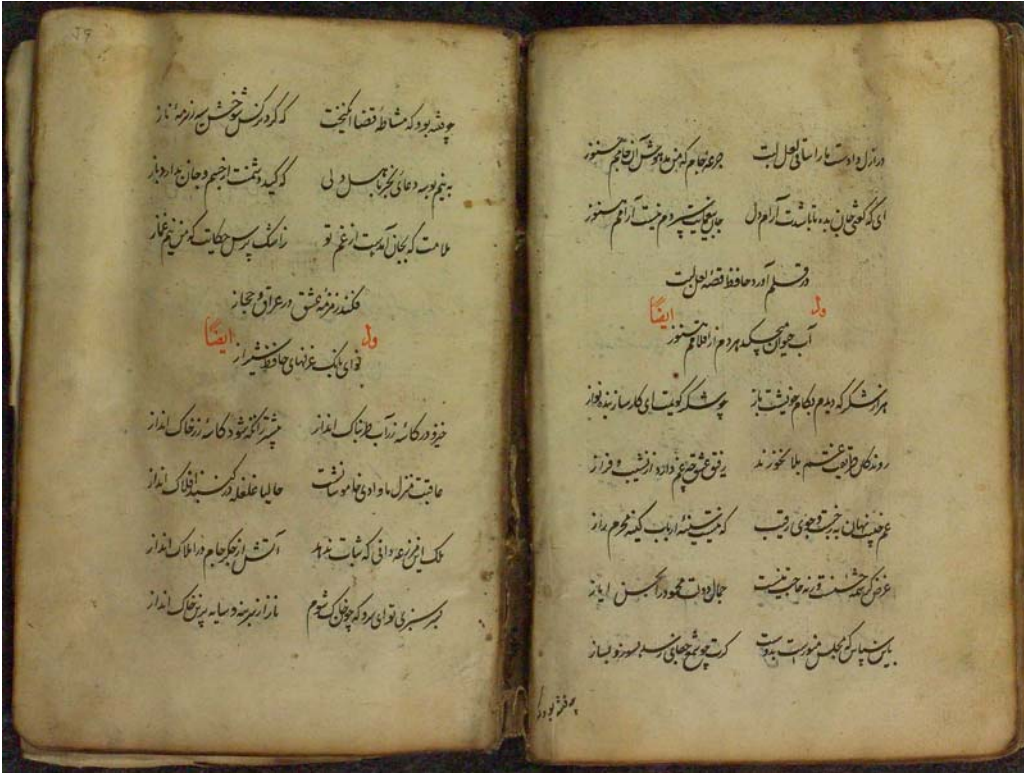 در ازل دادست ما را ساقی لعل لبت جرعه جام که من مدهوش آن جامم هنوز
ای که گفتی جان بده تا باشدت آرام دل جان بغمهایت سپردم نیست آرامم هنوز
در قلم آورد حافظ قصه لعل لبت
وله ایضاً
آب حیوان میچکد هر دم از اقلامم هنوز
هزار شکر که دیدم بکام خویشت باز چه شکر گویمت ای کارساز بنده نواز
روندگان طریقت غم بلا نخورند رفیق عشق چه غم دارد از نشیب و فراز
غم حبیب نهان به ز جست و جوی رقیب که نیست سینه ارباب کینه محرم راز
غرض کرشمه حسنست ورنه حاجت نیست جمال دولت محمود را بحسن ایاز
باین سپاس که مجلس منورست بدوست گرت چو شمع جفای رسد بسوز و بساز
چه فتنه بود که
چه فتنه بود که مشاطه قضا انگیخت که کرد نرگس شوخش سیه ز سرمه ناز
به نیم بوسه دعای بخر ز اهل دلی که کید دشمنت از جسم و جان بدارد باز
ملامت که بجان آمدست از غم تو ز اشک پرس حکایت که من نیم غماز
فکند زمزمه عشق در عراق و حجاز
وله ایضاً
نوای بانک غزلهای حافظ شیراز
خیز و در کاسه زر آب طربناک انداز پیشتر زانکه شود کاسه زر خاک انداز
عاقبت منزل ما وادی خاموشانست حالیا غلغله در گنبد افلاک انداز
ملک این مزرعه دانی که ثبات ندهد آتش از جگر جام در املاک انداز
بسر سبزی تو ای سرو که چون خاک شوم ناز از سر بنه و سایه برین خاک انداز